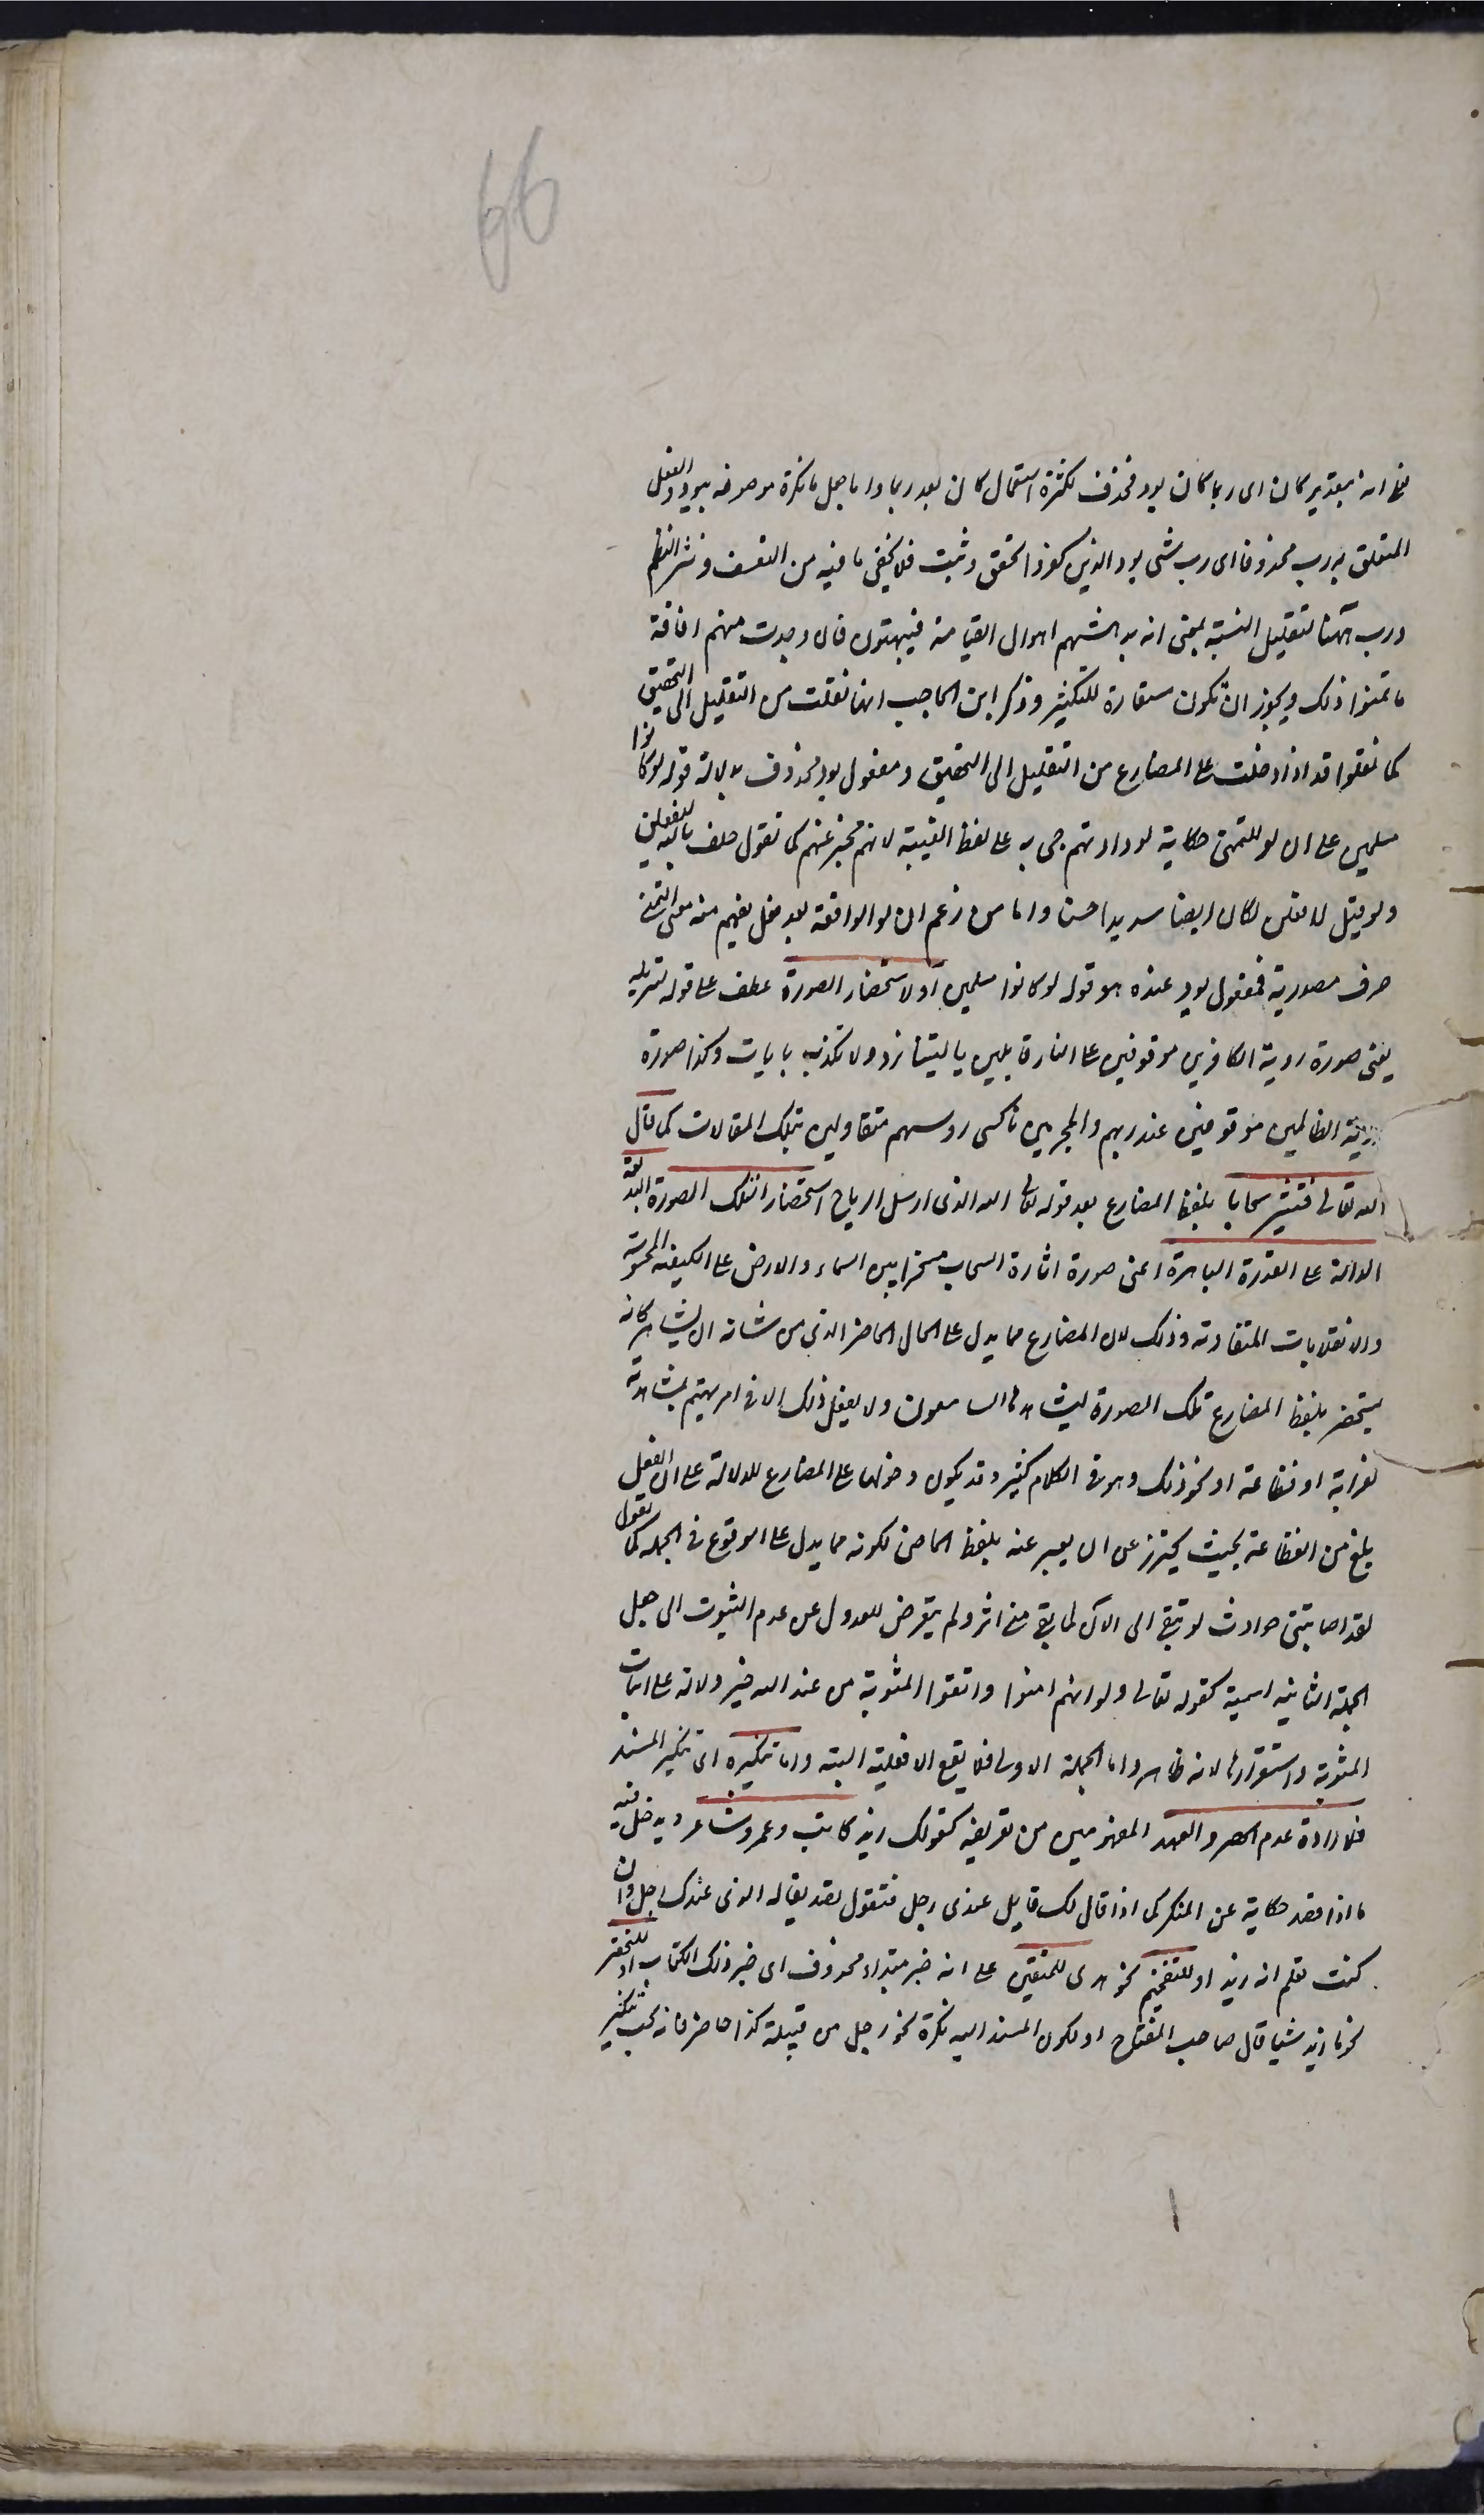 66
فى انه بتقدير كان اى ربما كان يود فحذف لكثرة استعمال كان بعد ربما واما جعل ما نكرة موصوفه بيود والفعل
المتعلق به رب محذوفا اى رب شى يود الذين كفروا تحقق وثبت فلا يخفى ما فيه من التعسف ونثر النظم
ورب ههنا لتقليل النسبة بمعنى انه يدهشهم اهوال القيامة فيبهتون فان وجدت منهم افاقة
ما تمنوا ذلك ويجوز ان تكون مستعارة للتكثير وذكر ابن الحاجب انها نقلت من التقليل الى التحقيق
كما نقلوا قد اذا دخلت على المضارع من التقليل الى التحقيق ومفعول يود محذوف بدلالة قوله لو كانوا
مسلمين على ان لو للتمنى حكاية لودادتهم جى به على لفظ الغيبة لانهم مخبر عنهم كما تقول حلف بالله ليفعلن
ولو قيل لافعلن لكان ايضا سديدا حسنا واما من زعم ان لو الواقعة بعد فعل يفهم منه معنى التمنى
حرف مصدرية فمفعول يود عنده هو قوله لو كانوا مسلمين او لاستحضار الصورة عطف على قوله لتنزيله
يعنى صورة روية الكافرين موقوفين على النار قايلين يا ليتنا نرد ولا نكذب بايات وكذا صورة
روية الظالمين موقوفين عند ربهم والمجرمين ناكسى روسهم متقاولين بتلك المقالات كما قال
الله تعالى فتثير سحابا بلفظ المضارع بعد قوله تعالى الله الذى ارسل الرياح استحضارا لتلك الصورة البديعة
الدالة على القدرة الباهرة اعنى صورة اثارة السحاب مسخرا بين السماء والارض على الكيفية المخصوصة
والانقلابات المتفاوته وذلك لان المضارع مما يدل على الحال الحاضر الذى من شانه ان يشاهد كانه
يستحضر بلفظ المضارع تلك الصورة ليشاهدها السامعون ولا يفعل ذلك الا فى امر يهتم بمشاهدته
لغرابة او فظاعة او نحو ذلك وهو فى الكلام كثير وقد يكون دخولها على المضارع للدلالة على ان الفعل
بلغ من الفظاعة بحيث يحترز عن ان يعبر عنه بلفظ الماضى لكونه مما يدل على الوقوع فى الجملة كما تقول
لقد اصابتنى حوادث لو تبقى الى الان لما بقى منى اثر ولم يتعرض للعدول عن عدم الثبوت الى جعل
الجملة الثانيه اسمية كقوله تعالى ولو انهم امنوا واتقوا لمثوبة من عند الله خير دلالة على اثبات
المثوبة واستقرارها لانه ظاهر واما الجملة الاولى فلا يقع الا فعلية البته واما تنكيره اى تنكير المسند
فلارادة عدم الحصر والعهد المفهومين من تعريفه كقولك زيد كاتب وعمرو شاعر ويدخل فيه
ما اذا قصد حكاية عن المنكر كما اذا قال لك قايل عندى رجل فتقول تصديقا له الذى عندك رجل وان
كنت تعلم انه زيد او للتفخيم نحو هدى للمتقين على انه خبر مبتداء محذوف اى خبر ذلك الكتاب او للتحقير
نحو ما زيد شيا قال صاحب المفتاح او لكون المسند اليه نكرة نحو رجل من قبيلة كذا حاضر فانه يجب تنكير